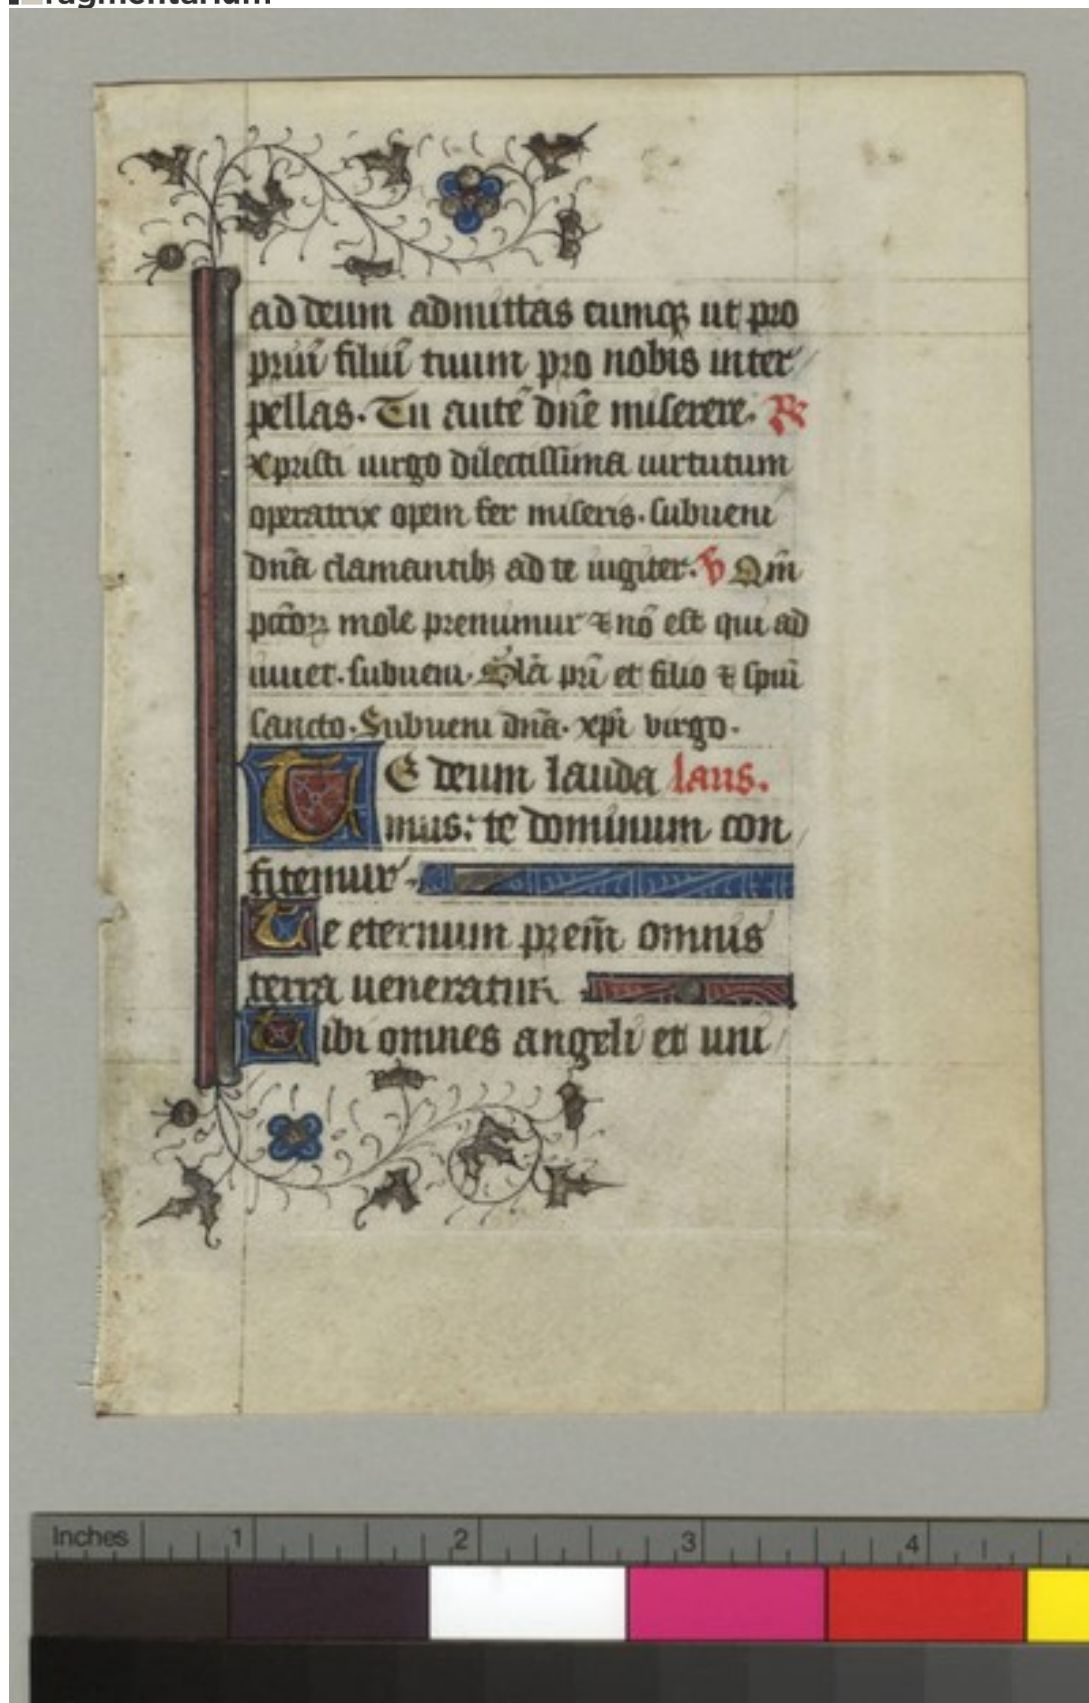 Fragmentarium
ad deum admittas eumqꝫ ut pro
priū filiū tuum pro nobis inter
pellas. Tu autē dn̄e miserere. ℞
xpristi uirgo dilectissima uirtutum
operatrix opem fer miseris. subueni
dn̄a clamantibꝫ ad te iugiter. ℣ Qm̄
pctōꝝ mole premimur ⁊ nō est qui ad
iuuet. subueni. Glā pri et filio ⁊ spūi
sancto. Subueni dn̄a. xpī virgo.
TE deum lauda laus.
mus: te dominum con
fitemur
Te eternum prem̄ omnis
terra ueneratur
Tibi omnes angeli et uni
Inches 1 2 3 4